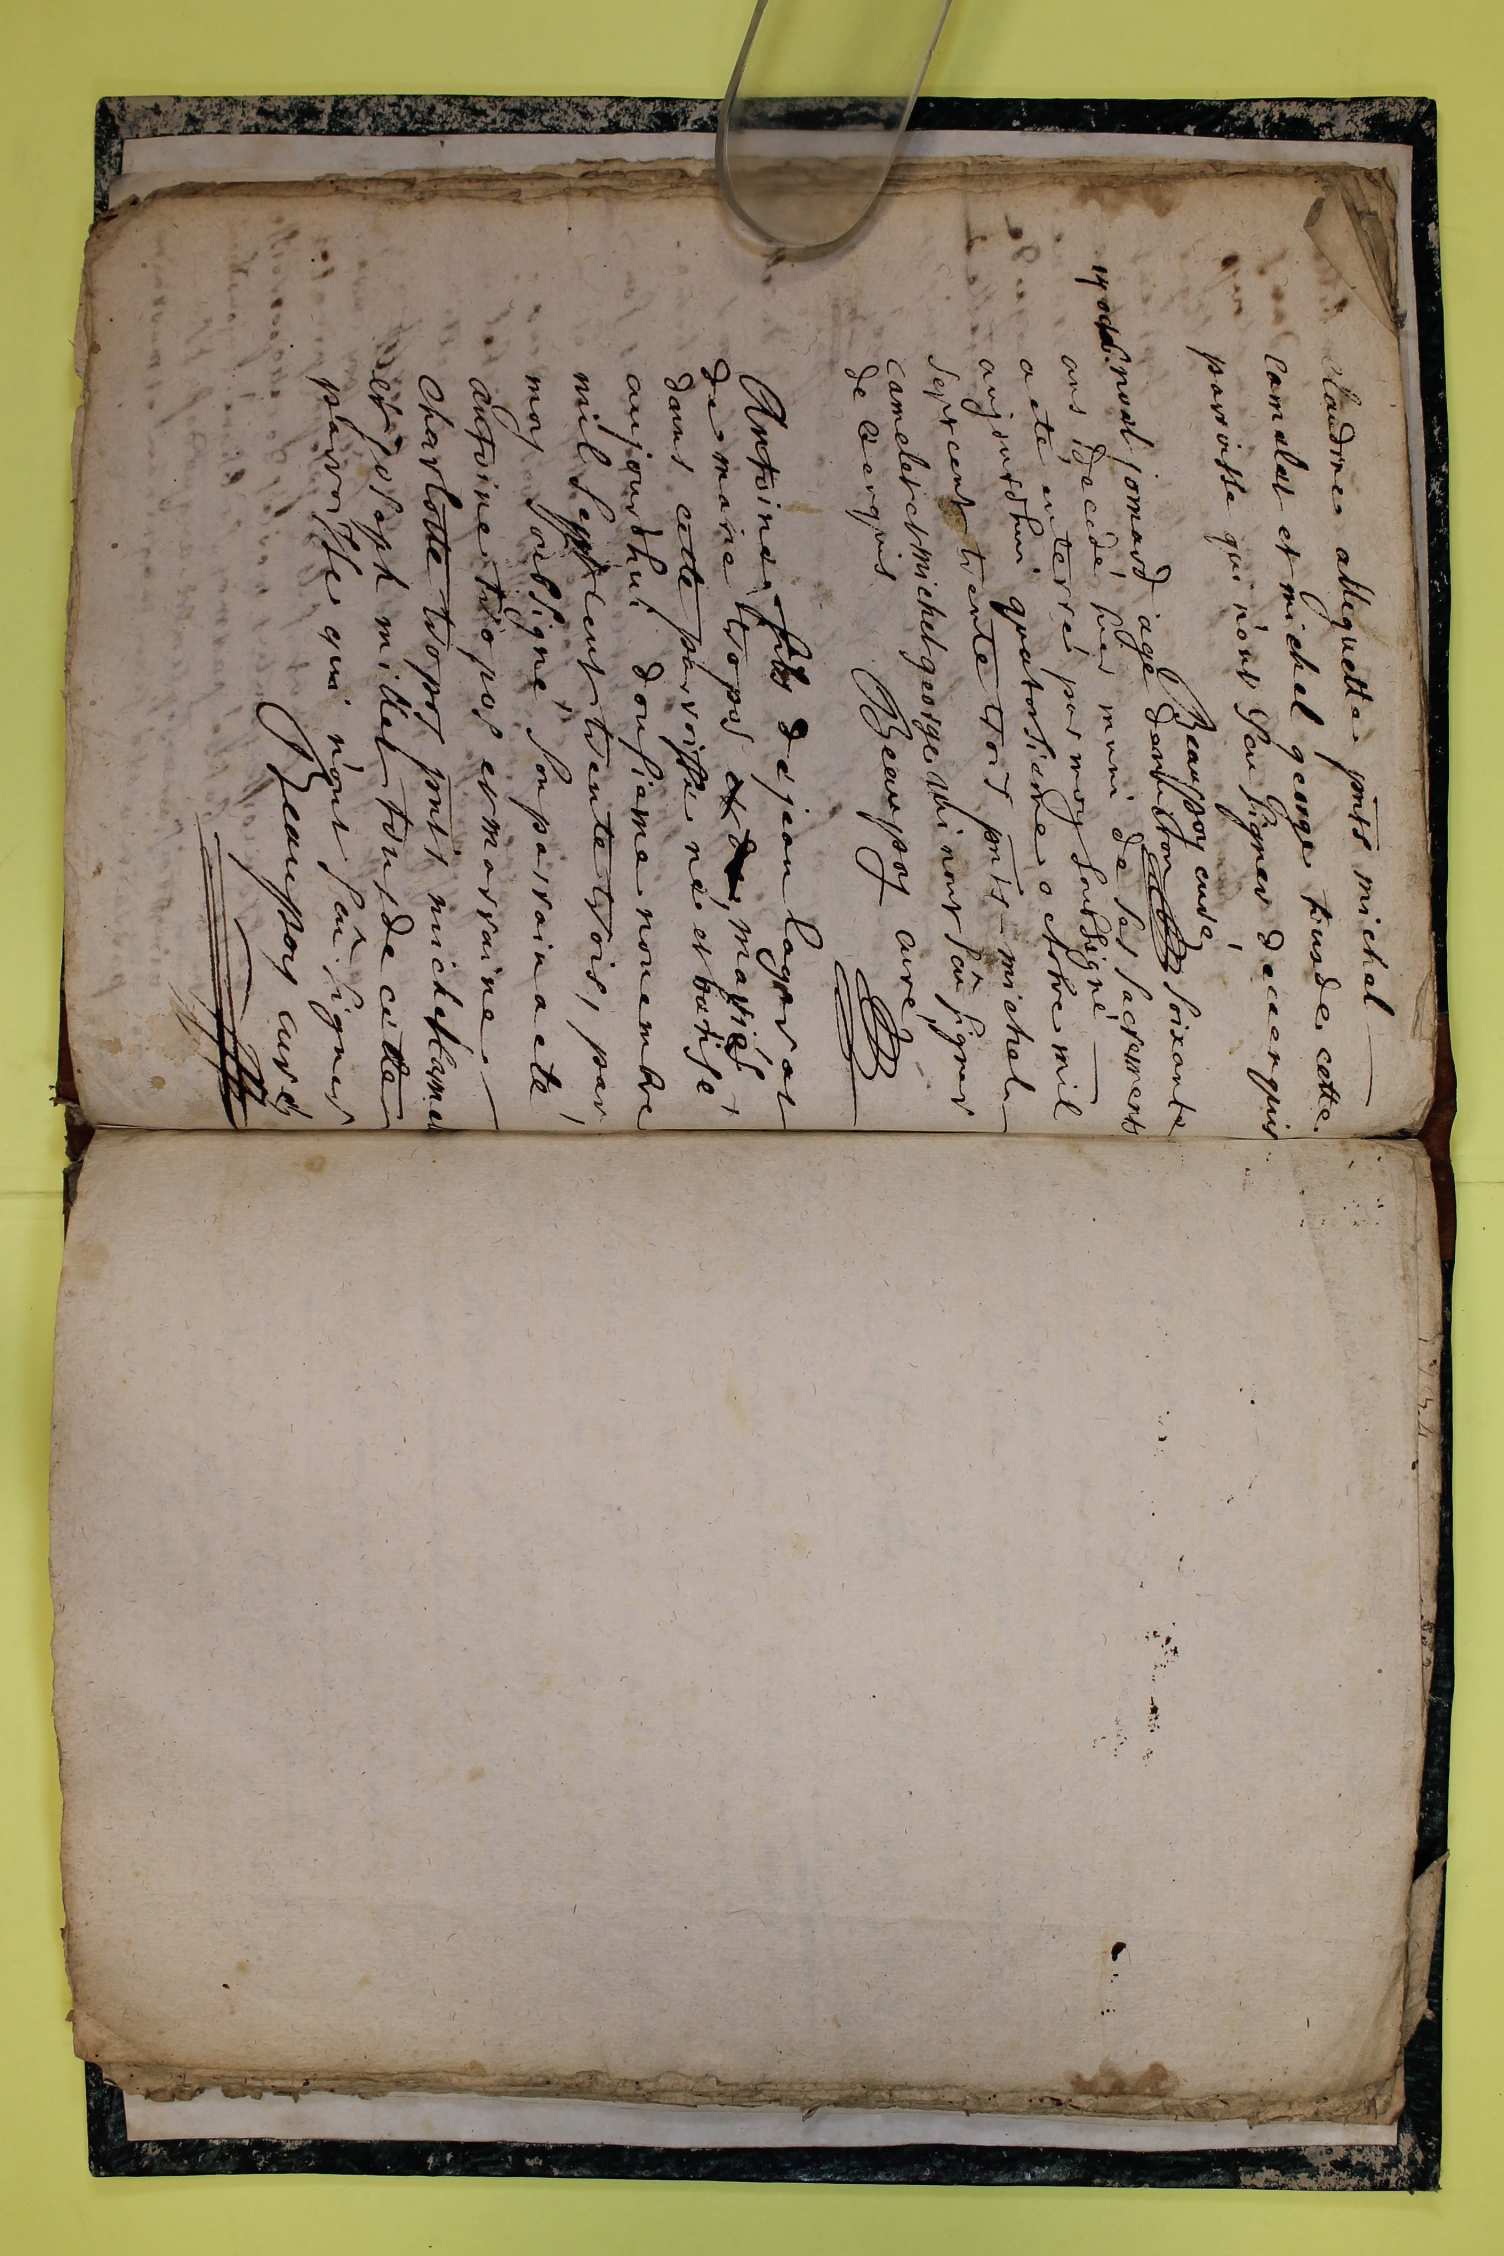 Claudine allegnette pnts michel
camelet et michel george tous de cette
parroisse qui nont Sceu signer de ce enquis
Beaupoy curé
14 oct.
Spval jomard age denviron soixante
ans decedé hier muni de ses sacrements
a eté enterré par moy soubsigné
aujourdhui quatorsieme octobre mil
sept cent trente trois pnts michel
camelet et michel george qui nont sçu signer
de ce enquis
Beaupoy curé
Antoine fils de jean lagorat
de marie tropos mariés
dans cette parroisse né et batisé
aujourdhui donsieme novembre
mil sept cent trente trois, par
moy soubsigné, son parrain a eté
antoine tropos et marraine
charlotte tropos pnts michel camelet
et joseph millet tous de cette
parroisse qui nont sçu signer
Beaupoy curé